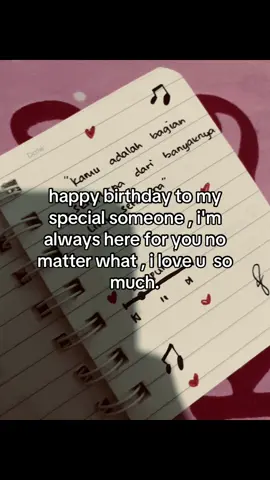 Date:
"Kamu adalah bagian
dari banyaknya
happy birthday to my
special someone , i'm
always here for you no
matter what , i love u so
much.